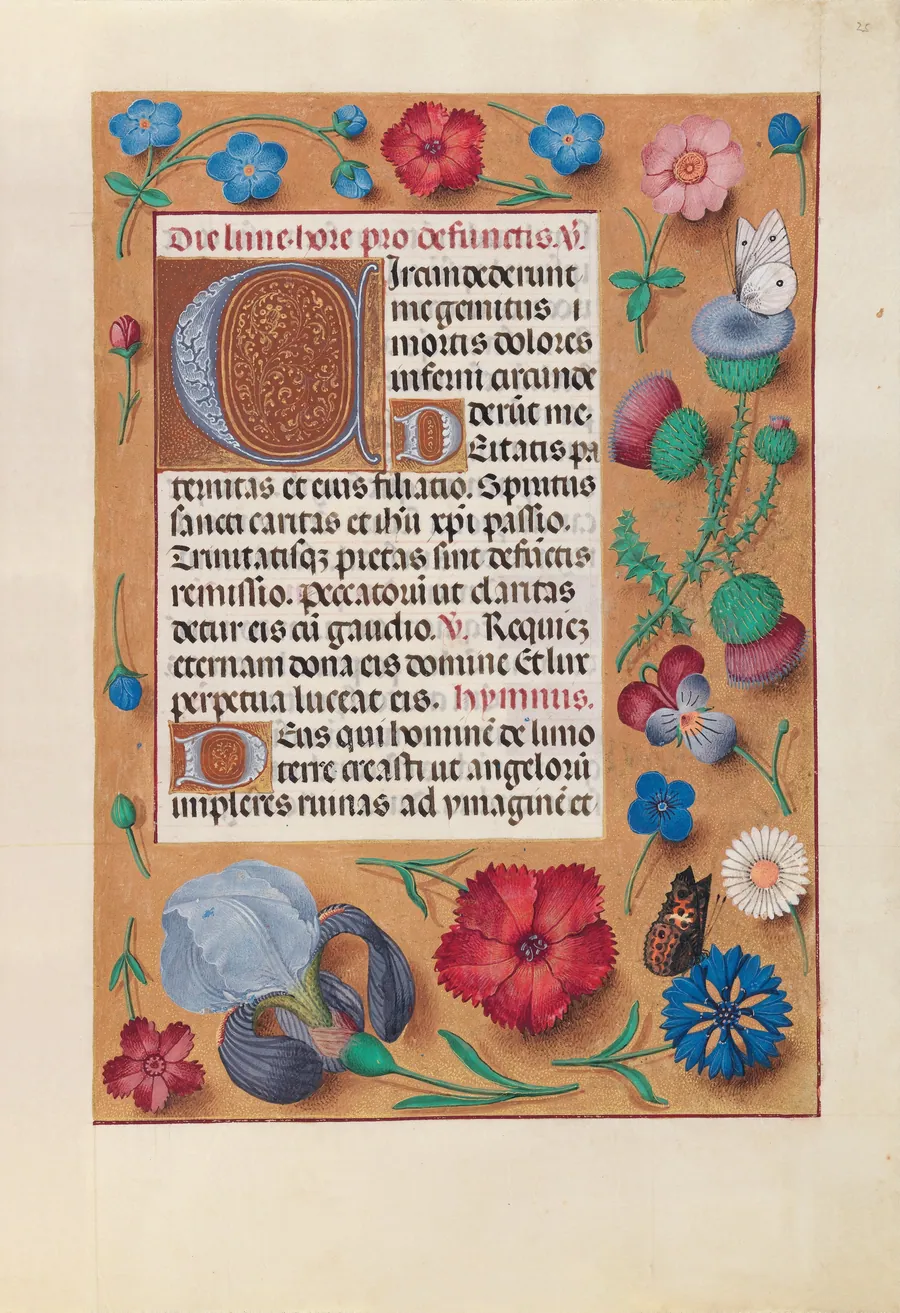 25
Die lune. hore pro defunctis. V.
Circundederunt
me gemitus
mortis dolores
inferni circunde
derūt me.
Deitatis pa
ternitas et eius filiatio. Spiritus
sancti caritas et ihū xp̄i passio.
Trinitatisqꝫ pietas sint defūctis
remissio. Peccatorū ut claritas
detur eis cū gaudio. V. Requiez
eternam dona eis domine Et lux
perpetua luceat eis. hymnus.
Deus qui hominē de limo
terre creasti ut angelorū
impleres ruinas ad ymaginē et